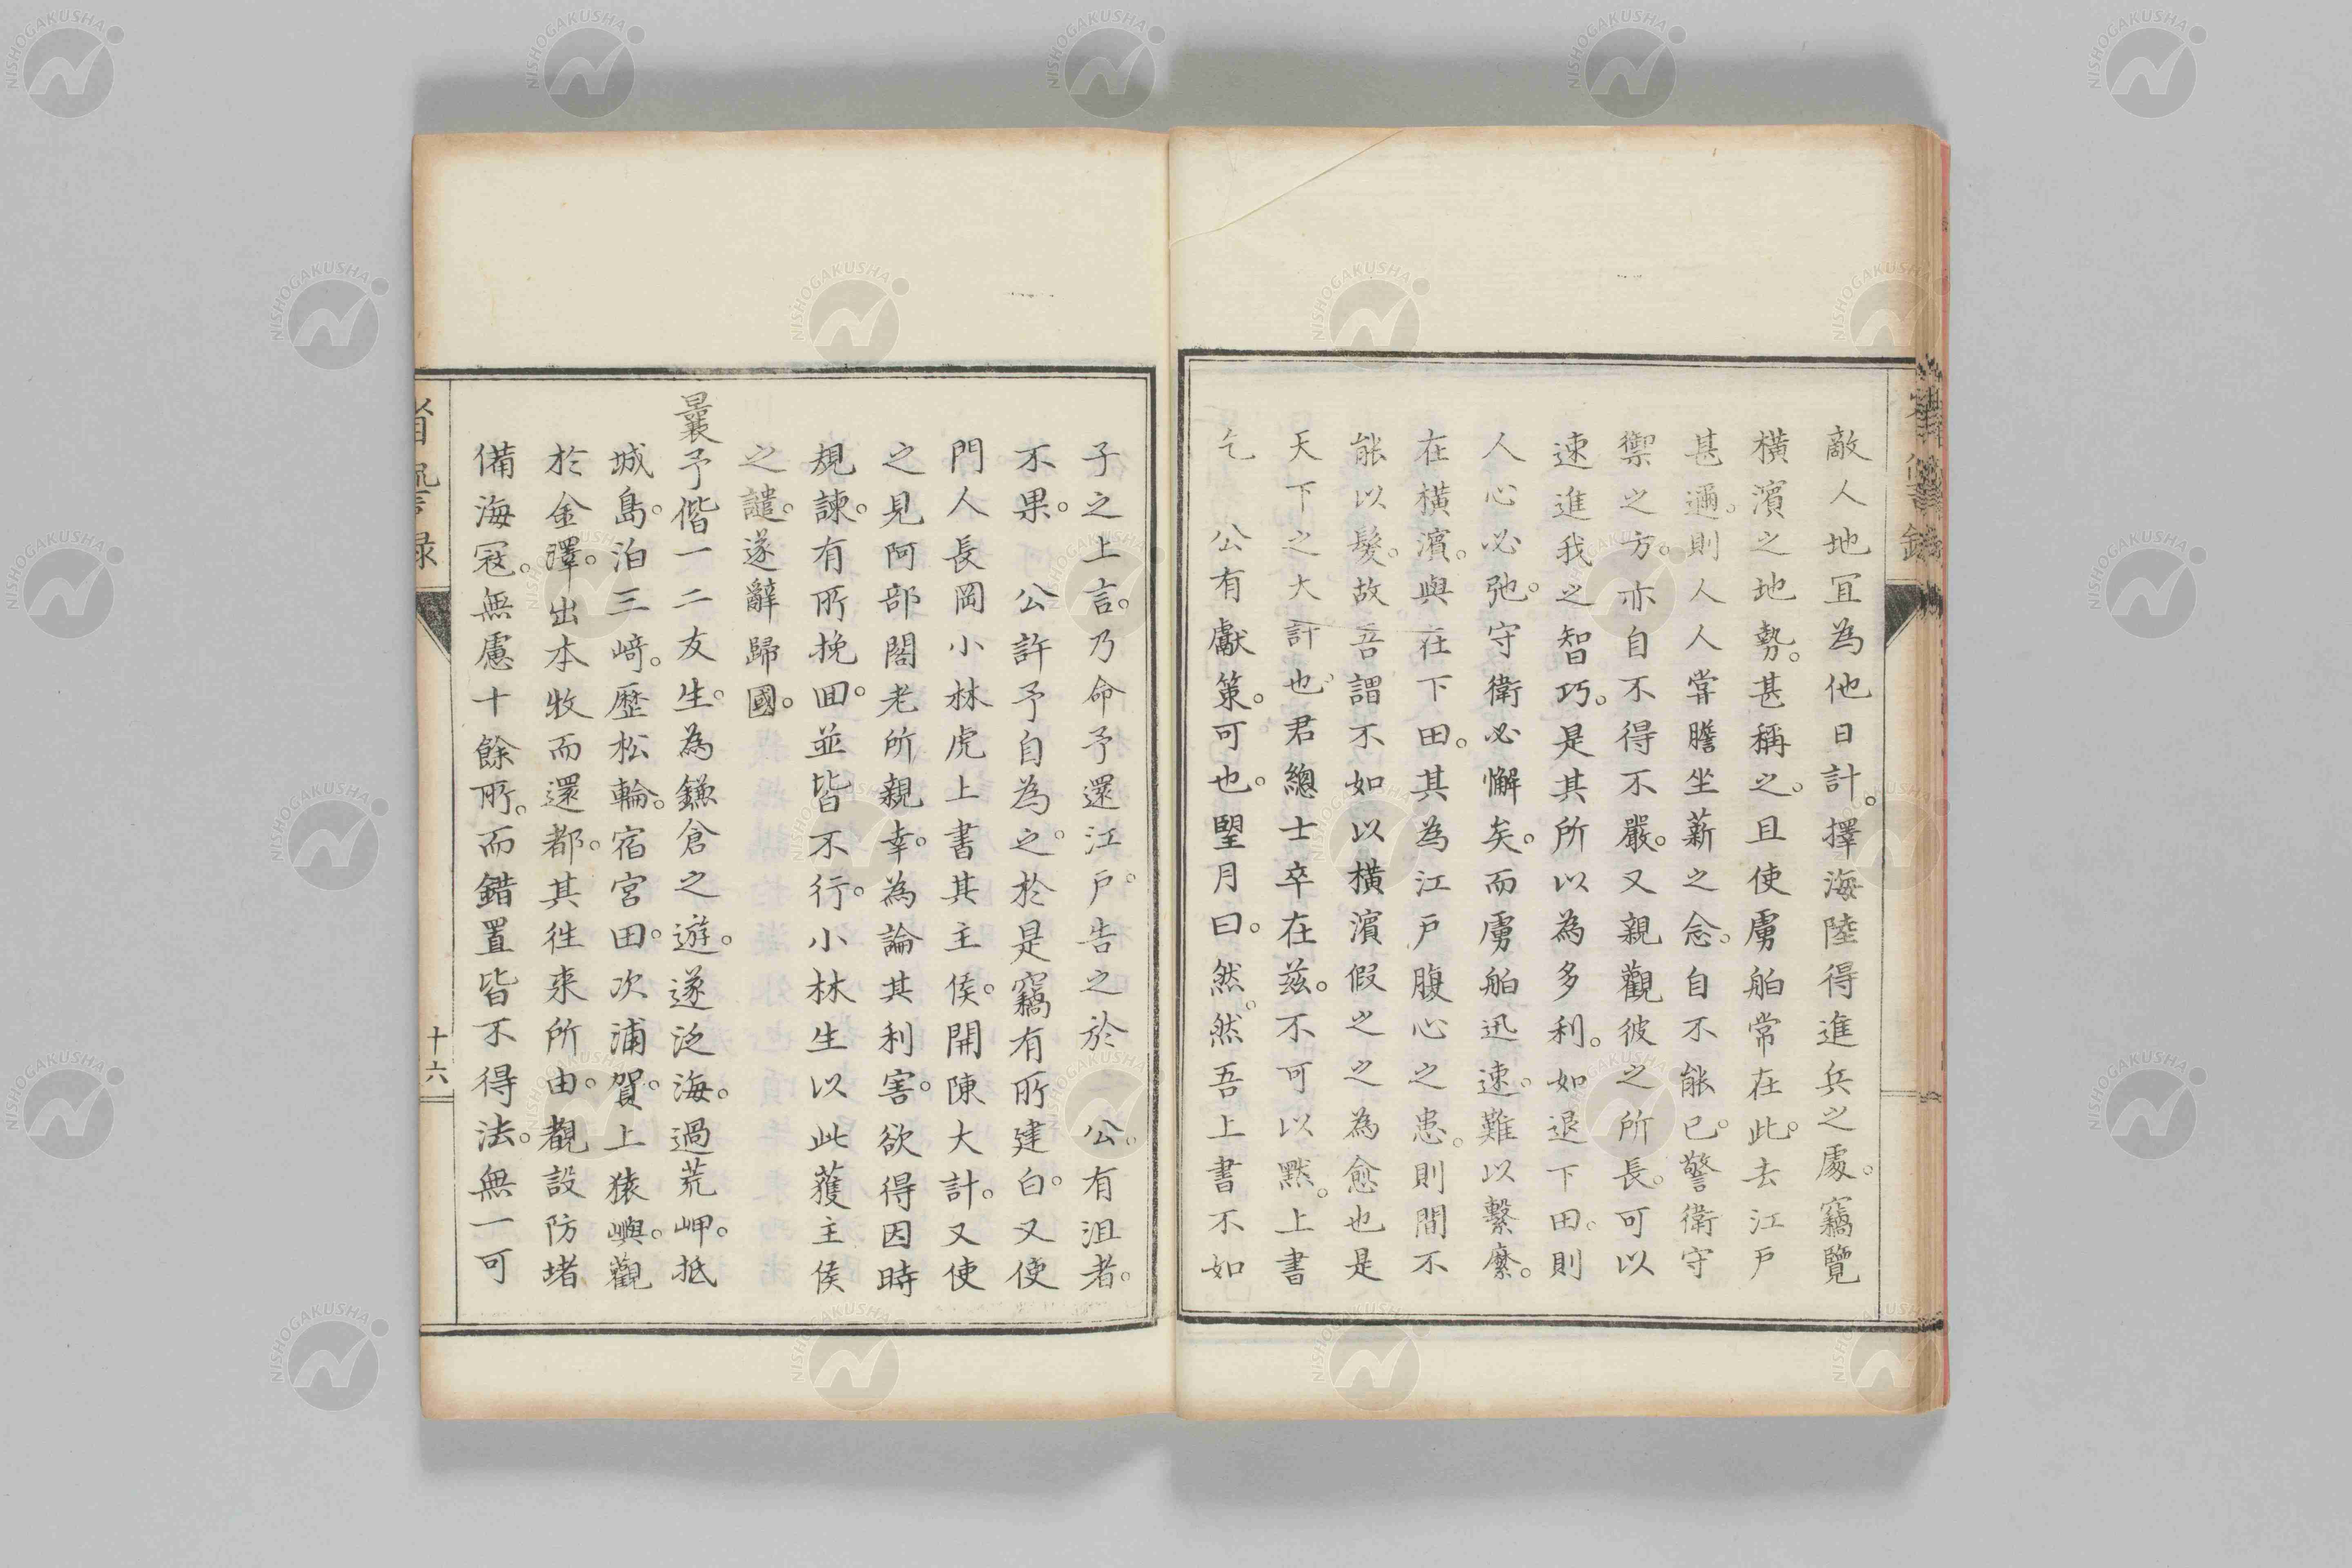 敵人地宜為他日計。擇海陸得進兵之處。竊覽
橫濱之地勢。甚稱之。且使虜舶常在此。去江戸
甚邇。則人人甞膽坐薪之念。自不能已。警衛守
禦之方。亦自不得不嚴。又親觀彼之所長。可以
速進我之智巧。是其所以為多利。如退下田。則
人心必弛。守衛必懈矣。而虜舶迅速。難以繫縻。
在橫濱。與在下田。其為江戸腹心之患。則間不
能以髮。故吾謂不如以橫濱假之之為愈也是
天下之大計也。君總士卒在茲。不可以默。上書
乞　公有獻策。可也。望月曰。然。然吾上書不如
子之上言。乃命予還江戸。告之於　公。有沮者。
不果。　公許予自為之。於是竊有所建白。又使
門人長岡小林虎上書其主侯。開陳大計。又使
之見阿部閣老所親幸。為論其利害。欲得因時
規諫。有所挽囬。並皆不行。小林生以此獲主侯
之譴。遂辭歸國。
曩予偕一二友生。為鎌倉之遊。遂泛海。過荒岬。抵
城島。泊三﨑。歷松輪。宿宮田。次浦賀。上猿嶼。觀
於金澤。出本牧而還都。其徃来所由。覩設防堵
備海冦。無慮十餘所。而錯置皆不得法。無一可
省諐録
十六
NISHOGAKUSHA